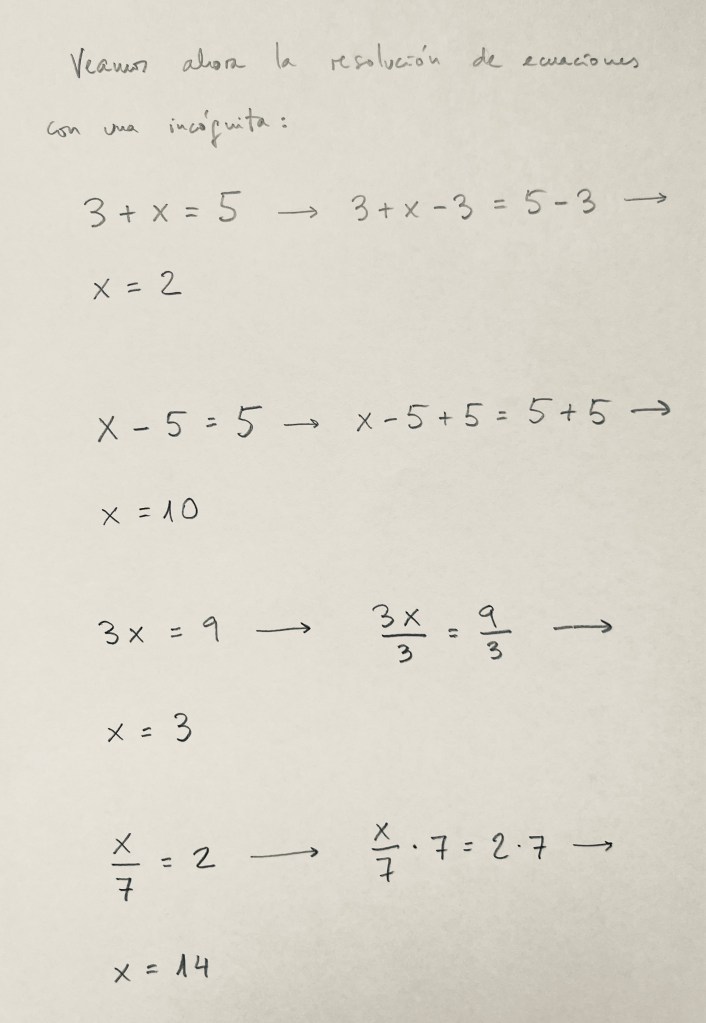 Veamos ahora la resolución de ecuaciones
con una incógnita:
3 + x = 5 → 3 + x - 3 = 5 - 3 →
x = 2
x - 5 = 5 → x - 5 + 5 = 5 + 5 →
x = 10
3x = 9 → 3x/3 = 9/3 →
x = 3
x/7 = 2 → x/7 · 7 = 2 · 7 →
x = 14